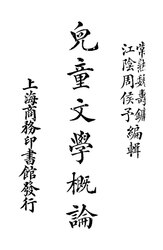 魏壽鏞
江陰周侯予
編輯
兒童文學概論
上海商務印書館發行